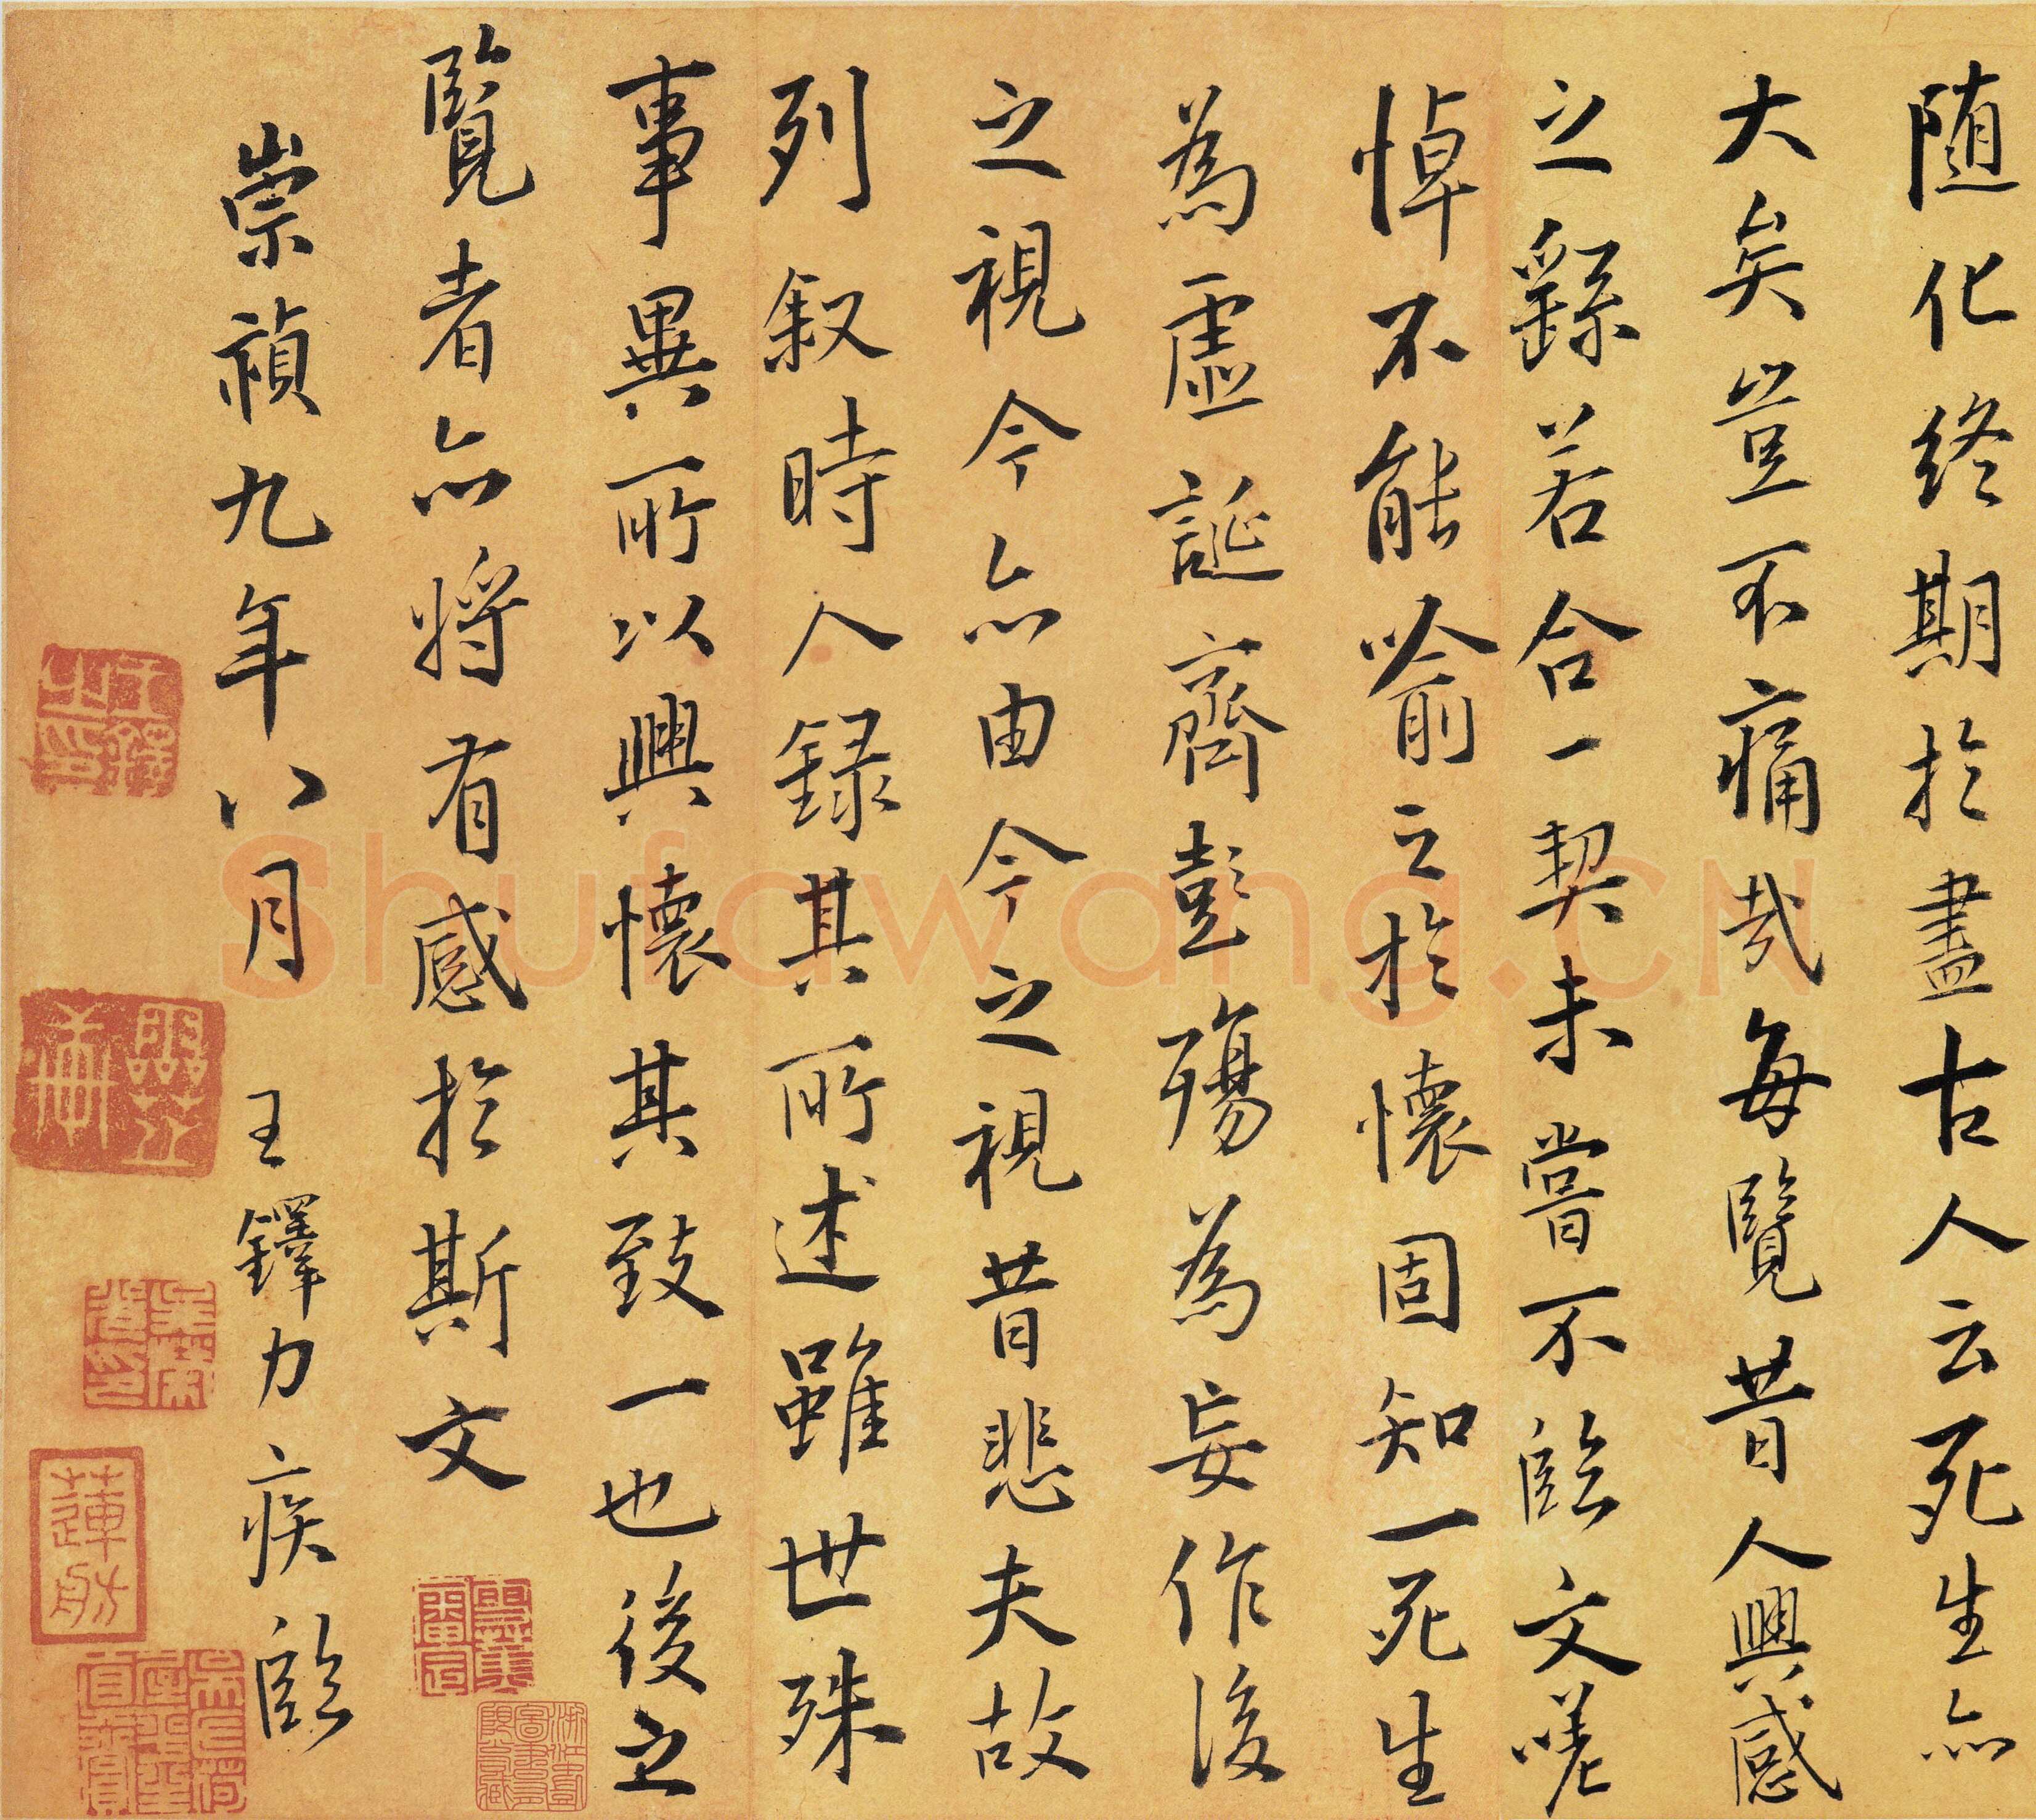 随化終期於盡古人云死生亦
大矣豈不痛哉每覽昔人興感
之繇若合一契未嘗不臨文嗟
悼不能喻之於懷固知一死生
為虛誕齊彭殤為妄作後
之視今亦由今之視昔悲夫故
列叙時人録其所述雖世殊
事異所以興懷其致一也後之
覽者亦將有感於斯文
崇禎九年八月 王鐸力疾臨
王鐸之印
蓮舫
Shufawang.CN